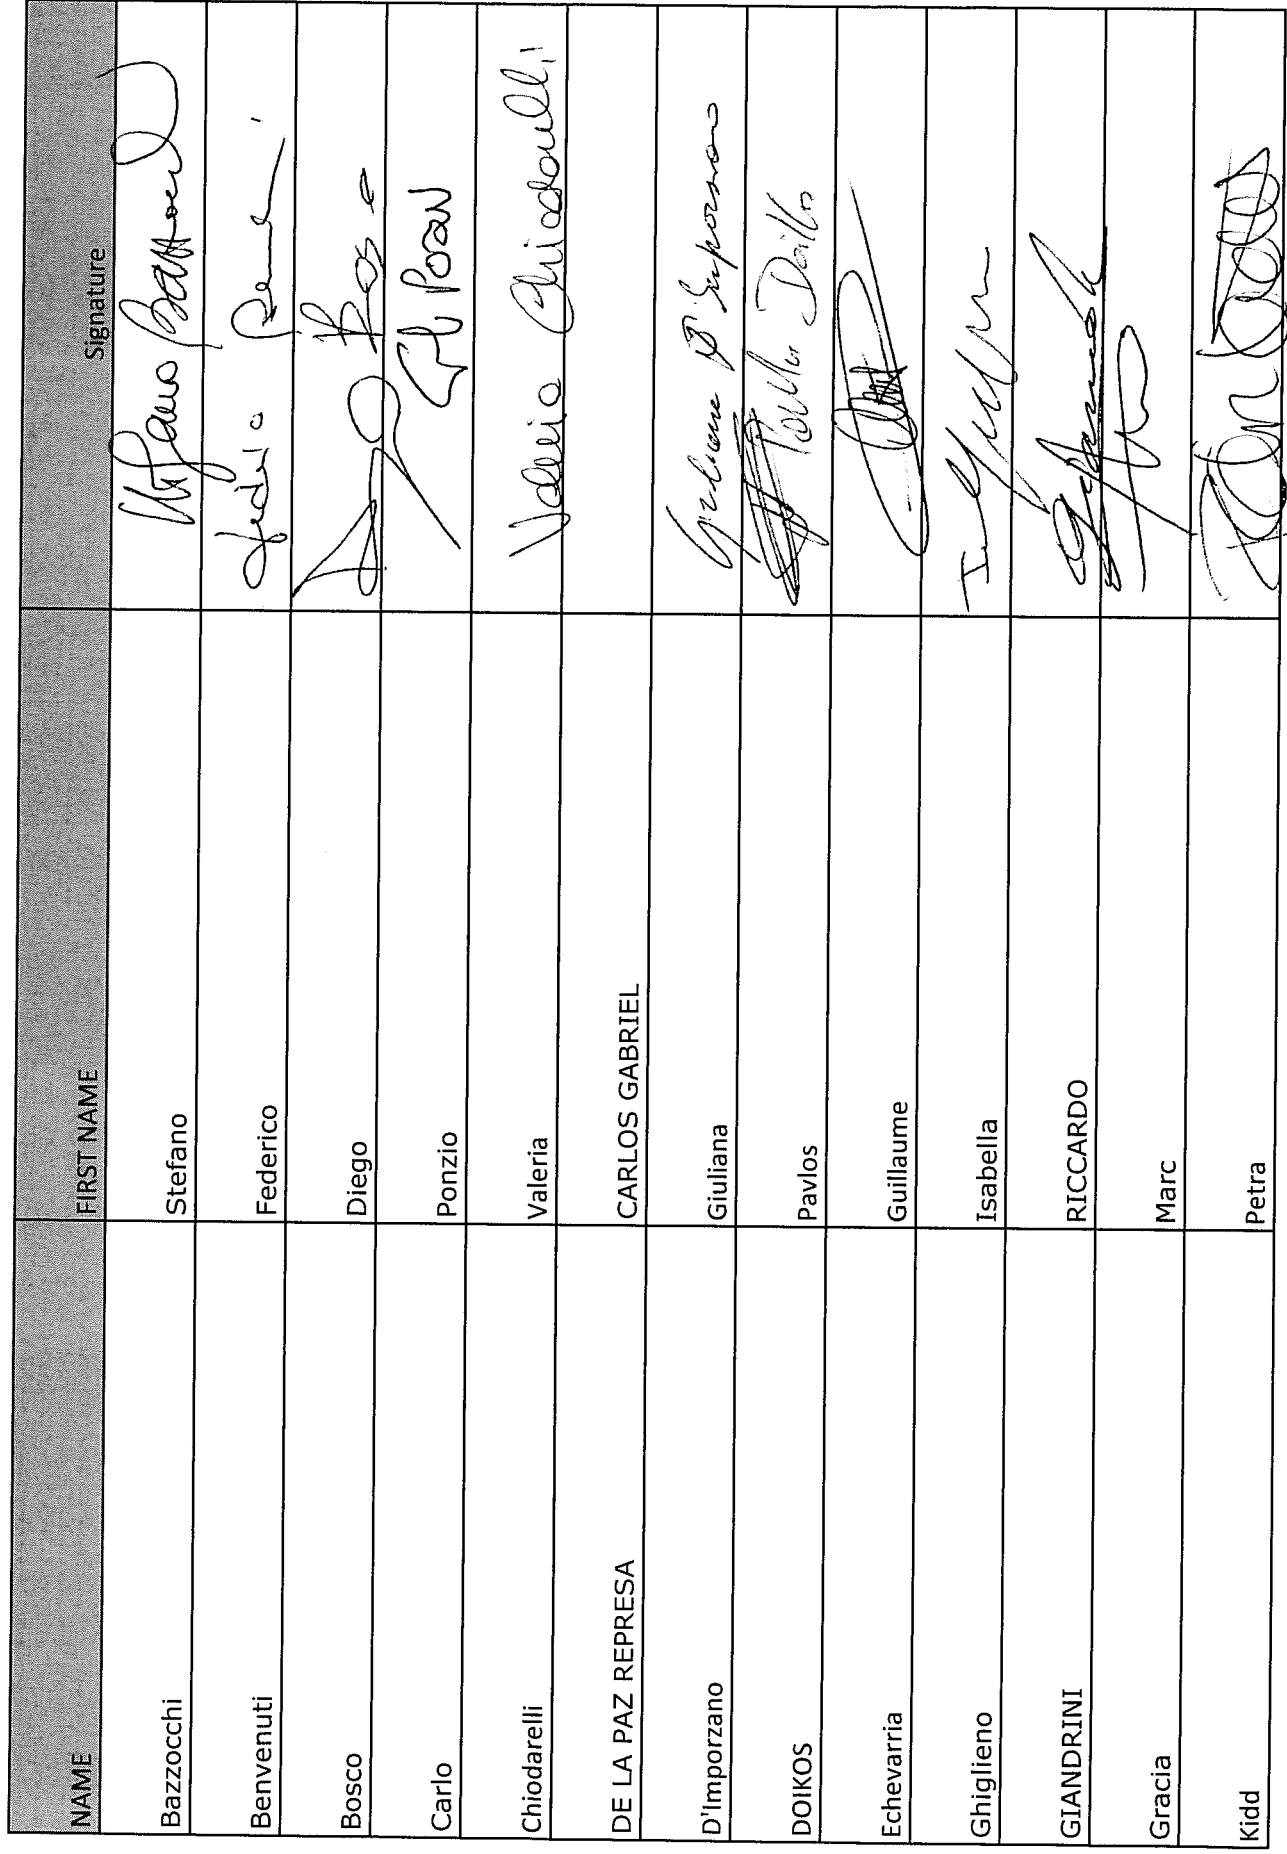 NAME FIRST NAME Signature
Bazzocchi Stefano Stefano
Benvenuti Federico
Bosco Diego
Carlo Ponzio
Chiodarelli Valeria Valeria Chiodarelli
DE LA PAZ REPRESA CARLOS GABRIEL
D'Imporzano Giuliana Giuliana D'Imporzano
DOIKOS Pavlos
Echevarria Guillaume
Ghiglieno Isabella
GIANDRINI RICCARDO
Gracia Marc
Kidd Petra